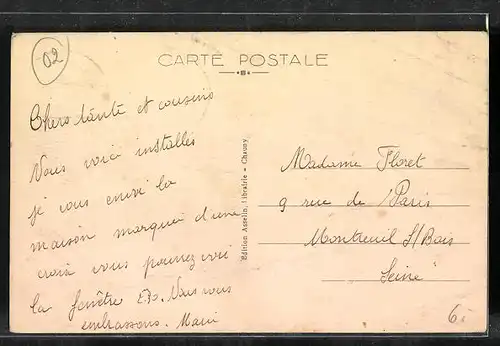 02
CARTE POSTALE
Chers tante et cousins
Nous voici installés
je vous envoi la
maison marquée d'une
croix vous pourrez voir
la fenêtre Nous vous
embrassons.
Édition Asselin, Librairie - Chauny
Madame Floret
9 rue de Paris
Montreuil S/Bois
Seine
6